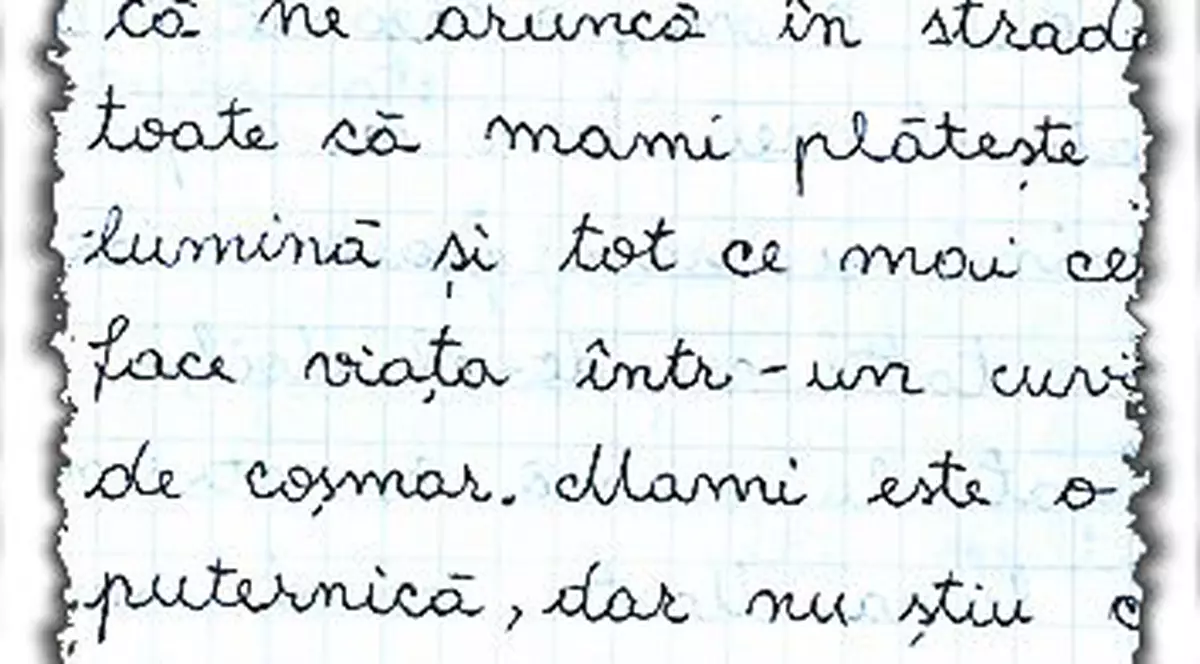 că ne aruncă în strad
toate că mami plătește
lumină și tot ce mai ce
face viața într-un cuvi
de coșmar. Mami este o
puternică, dar nu știu c